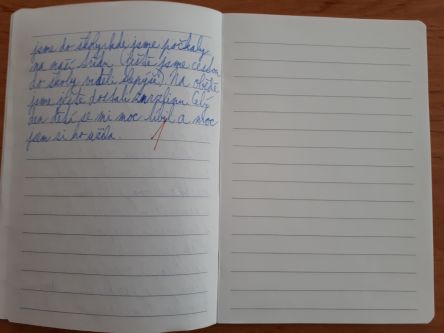 jsme do školy kde jsme počkaly
na naší třídu (ještě jsme cestou
do školy viděli slepýše). Na obědě
jsme ještě dostali zmrzlinu. Celý
den se mi moc líbyl a moc
jsem si ho užila.